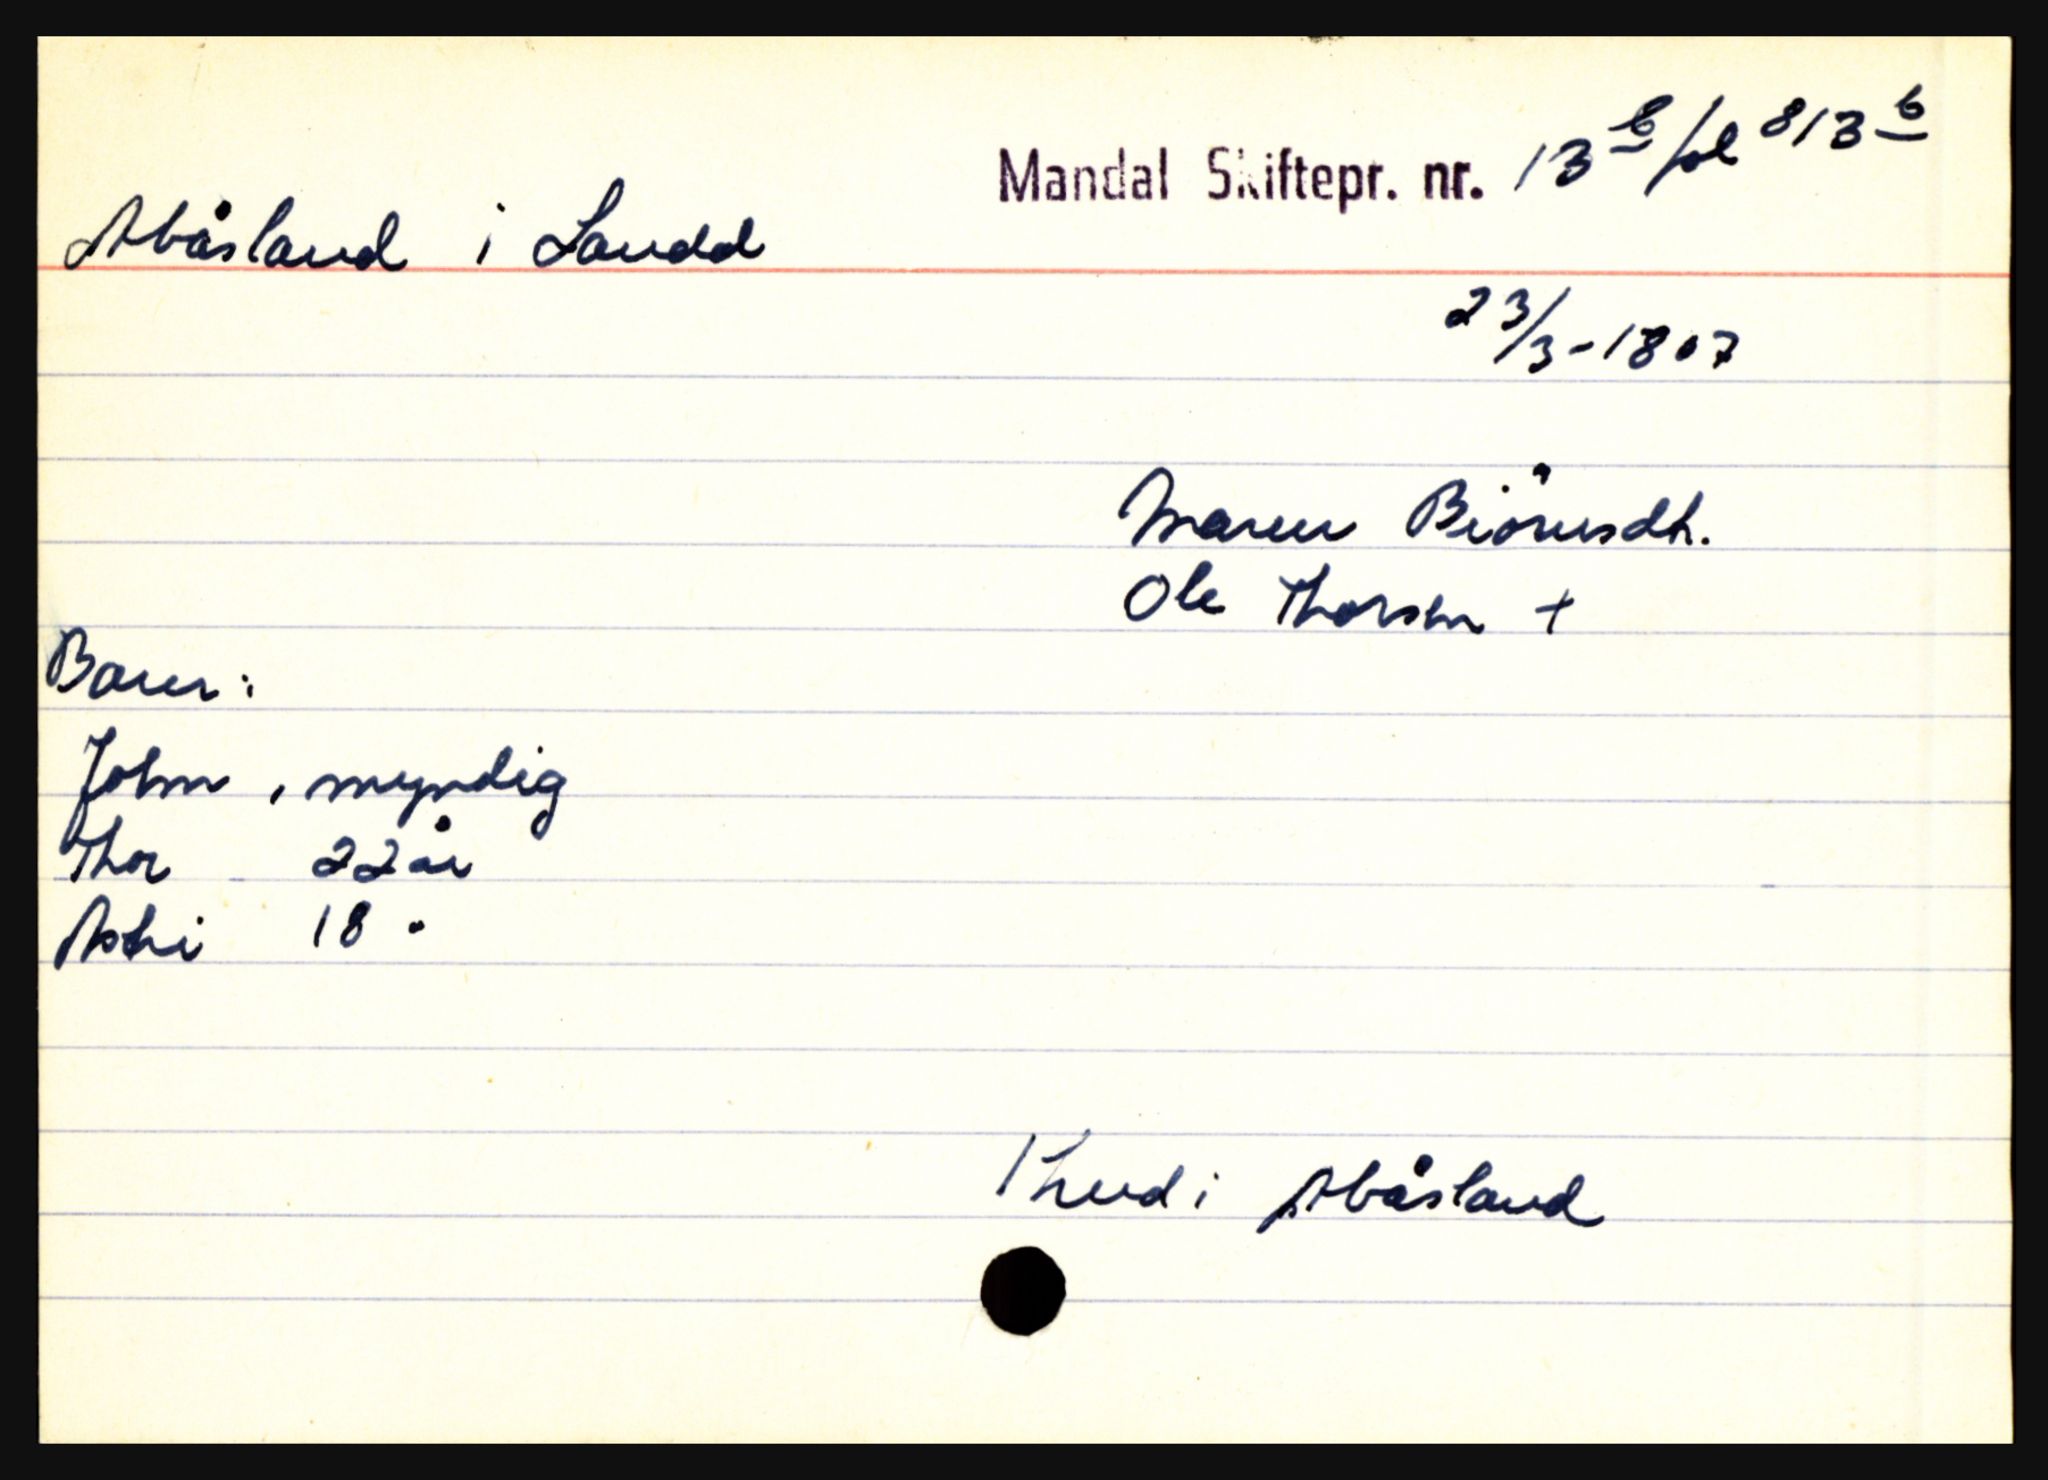 Mandal Skiftepr. nr. 13 b/fol 813 b
Abåsland i Laudal
23/3-1807
Maren Biörnsdtr.
Ole Thorsen +
Barn:
John, myndig
Thor 22 år
Astri 18 "
i Abåsland